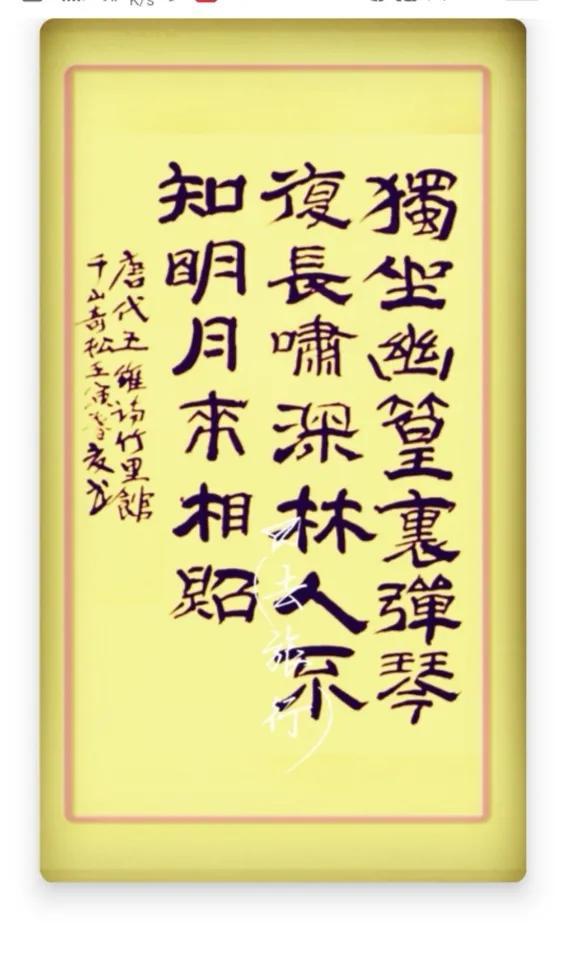 獨坐幽篁裏彈琴
復長嘯深林人不
知明月來相照
唐代王維詩竹里館
千山奇松王寅春夜書
去旅行
K/s